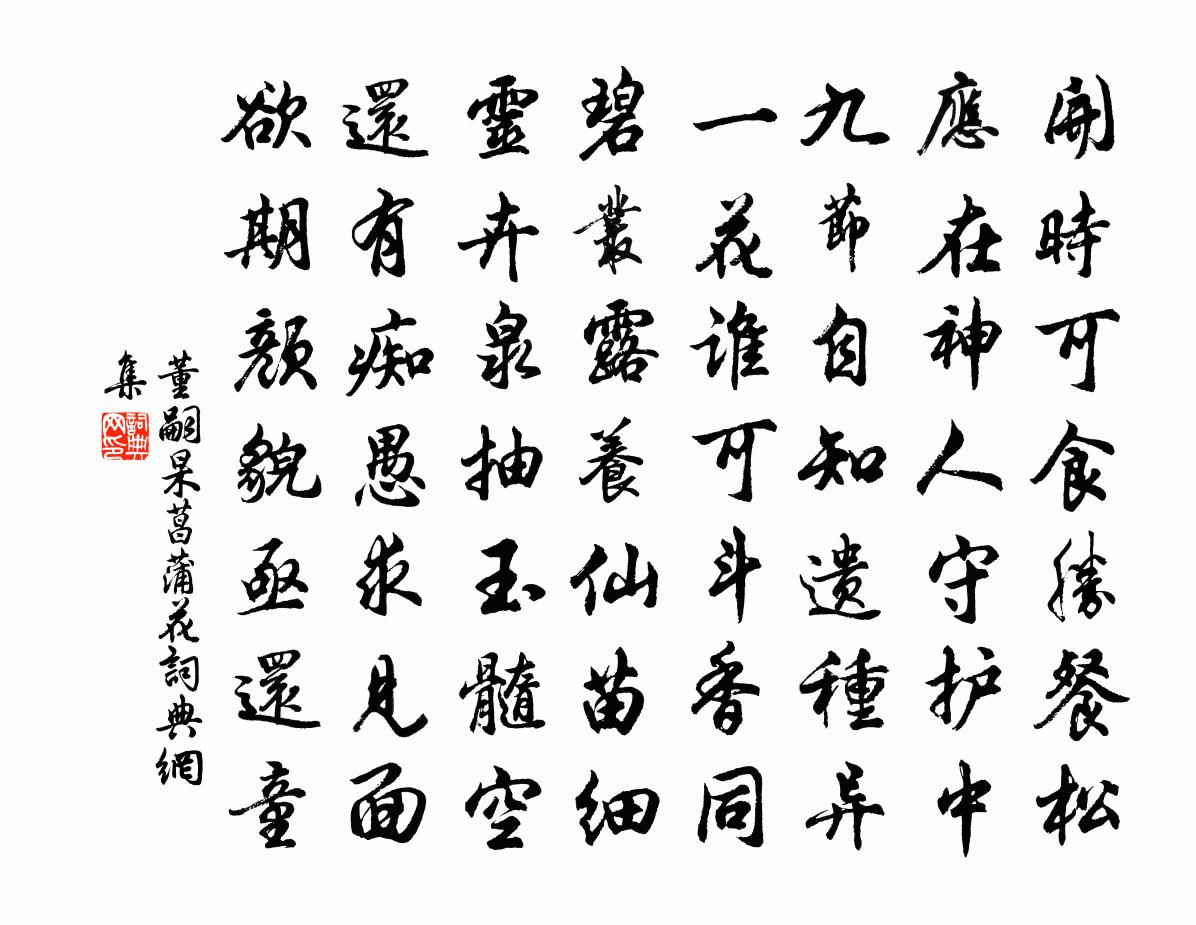 開時可食勝餐松
應在神人守护中
九節自知遗種异
一花誰可斗香同
碧叢露養仙苗細
靈卉泉抽玉髓空
還有痴愚求見面
欲期顔貌亟還童
董嗣杲菖蒲花詞典網
集
詞典
网印